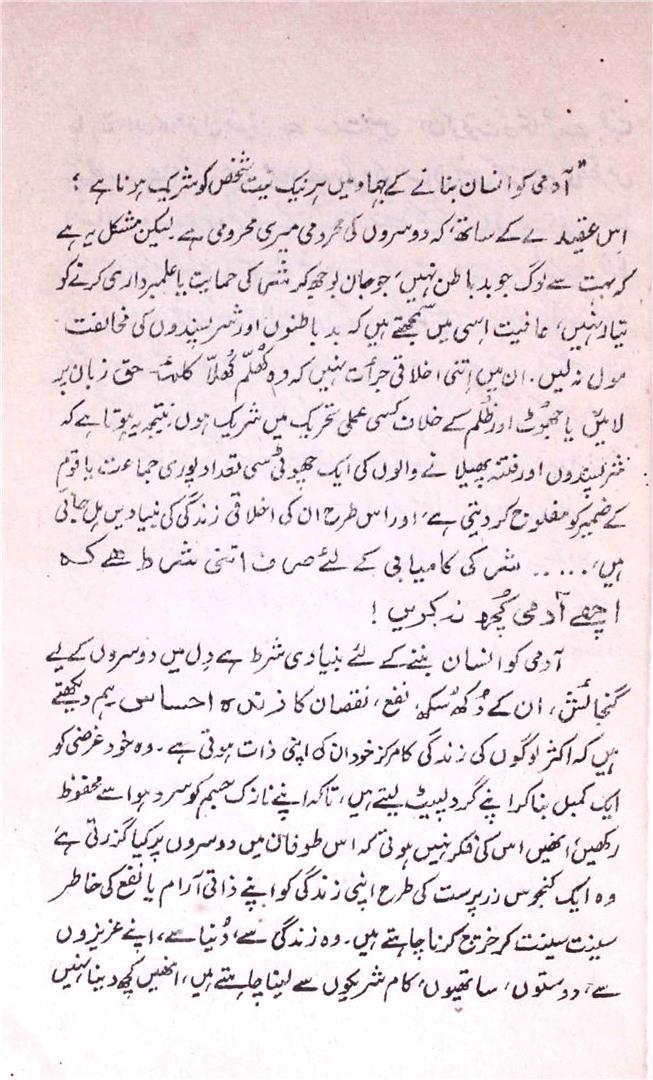 "آدمی کو انسان بنانے کے جہاد میں ہر نیک نیت شخص کو شریک ہونا ہے؛
اس عقیدے کے ساتھ، کہ دوسروں کی محرومی میری محرومی ہے۔ لیکن مشکل یہ ہے
کہ بہت سے لوگ جو بد باطن نہیں، جو جان بوجھ کر شر کی حمایت یا علمبرداری کرنے کو
تیار نہیں، عافیت اسی میں سمجھتے ہیں کہ بد باطنوں اور شر پسندوں کی مخالفت
مول نہ لیں۔ ان میں اتنی اخلاقی جرأت نہیں کہ وہ کُھلّم کُھلّا کلمۂ حق زبان پر
لائیں یا جھوٹ اور ظلم کے خلاف کسی عملی تحریک میں شریک ہوں۔ نتیجہ یہ ہوتا ہے کہ
شر پسندوں اور فتنہ پھیلانے والوں کی ایک چھوٹی سی تعداد پوری جماعت یا قوم
کے ضمیر کو مفلوج کر دیتی ہے، اور اس طرح ان کی اخلاقی زندگی کی بنیادیں ہل جاتی
ہیں، ..... شر کی کامیابی کے لئے صرف اتنی شرط ہے کہ
اچھے آدمی کُچھ نہ کریں!
آدمی کو انسان بننے کے لئے بنیادی شرط ہے دِل میں دوسروں کے لیے
گنجائش، ان کے دُکھ سُکھ، نفع، نقصان کا زندہ احساس۔ ہم دیکھتے
ہیں کہ اکثر لوگوں کی زندگی کا مرکز خود ان کی اپنی ذات ہوتی ہے۔ وہ خود غرضی کو
ایک کمبل بنا کر اپنے گرد لپیٹ لیتے ہیں، تاکہ اپنے نازک جسم کو سرد ہوا سے محفوظ
رکھیں؛ انھیں اس کی فکر نہیں ہوتی کہ اس طوفان میں دوسروں پر کیا گزرتی ہے
وہ ایک کنجوس زر پرست کی طرح اپنی زندگی کو اپنے ذاتی آرام یا نفع کی خاطر
سینت سینت کر خرچ کرنا چاہتے ہیں۔ وہ زندگی سے، دُنیا سے، اپنے عزیزوں
سے، دوستوں، ساتھیوں، کام شریکوں سے لینا چاہتے ہیں، انھیں کچھ دینا نہیں